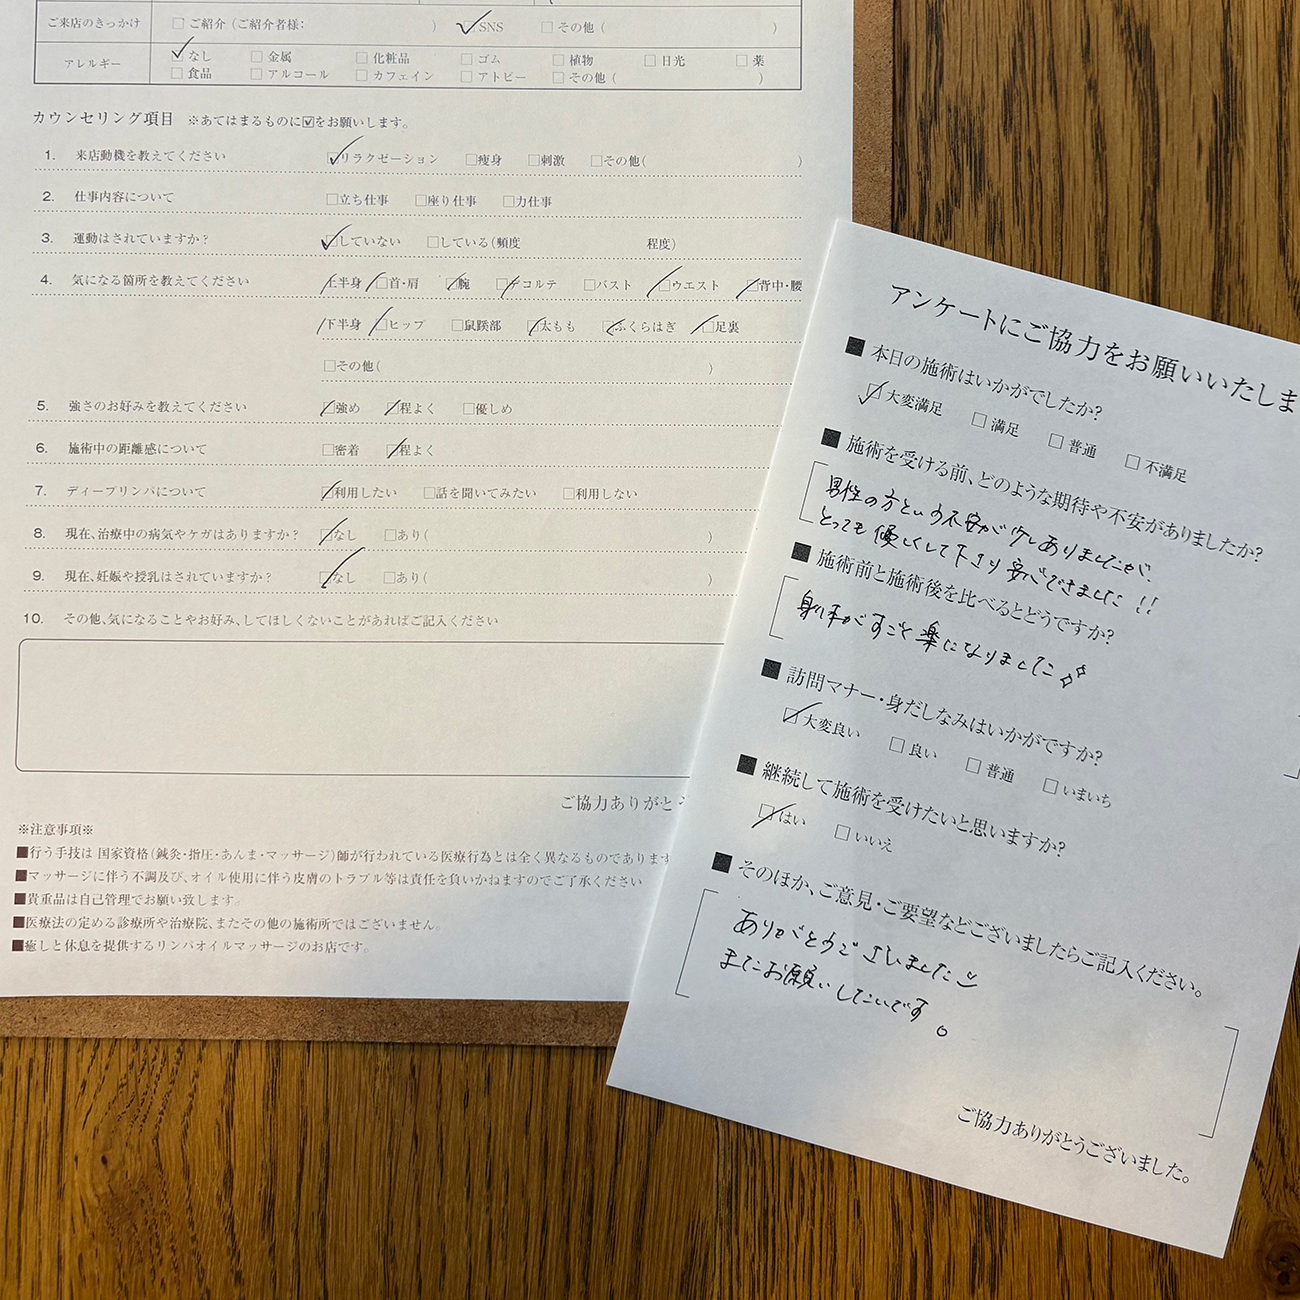 ご来店のきっかけ □ご紹介（ご紹介者様： ） ☑SNS □その他（ ）
アレルギー ☑なし □金属 □化粧品 □ゴム □植物 □日光 □薬
□食品 □アルコール □カフェイン □アトピー □その他（ ）
カウンセリング項目 ※あてはまるものに☑をお願いします。
1. 来店動機を教えてください ☑リラクゼーション □痩身 □刺激 □その他( )
2. 仕事内容について □立ち仕事 □座り仕事 □力仕事
3. 運動はされていますか？ ☑していない □している(頻度 程度)
4. 気になる箇所を教えてください 上半身 ☑首・肩 ☑腕 ☑デコルテ □バスト ☑ウエスト ☑背中・腰
下半身 ☑ヒップ □鼠蹊部 ☑太もも ☑ふくらはぎ ☑足裏
□その他( )
5. 強さのお好みを教えてください ☑強め ☑程よく □優しめ
6. 施術中の距離感について □密着 ☑程よく
7. ディープリンパについて ☑利用したい □話を聞いてみたい □利用しない
8. 現在、治療中の病気やケガはありますか？ ☑なし □あり( )
9. 現在、妊娠や授乳はされていますか？ ☑なし □あり( )
10. その他、気になることやお好み、してほしくないことがあればご記入ください
ご協力ありがとう
※注意事項※
■行う手技は 国家資格(鍼灸・指圧・あんま・マッサージ)師が行われている医療行為とは全く異なるものであります
■マッサージに伴う不調及び、オイル使用に伴う皮膚のトラブル等は責任を負いかねますのでご了承ください
■貴重品は自己管理でお願い致します。
■医療法の定める診療所や治療院、またその他の施術所ではございません。
■癒しと休息を提供するリンパオイルマッサージのお店です。
アンケートにご協力をお願いいたしま
■ 本日の施術はいかがでしたか？
☑大変満足 □満足 □普通 □不満足
■ 施術を受ける前、どのような期待や不安がありましたか？
男性の方という不安が少しありましたが、
とっても優しくして下さり安心できました!!
■ 施術前と施術後を比べるとどうですか？
身体がすごく楽になりました
■ 訪問マナー・身だしなみはいかがですか？
☑大変良い □良い □普通 □いまいち
■ 継続して施術を受けたいと思いますか？
☑はい □いいえ
■ そのほか、ご意見・ご要望などございましたらご記入ください。
ありがとうございました
またお願いしたいです。
ご協力ありがとうございました。